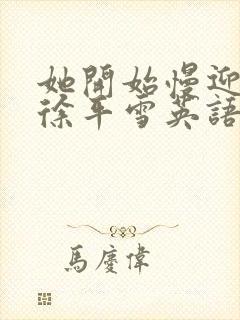 她開始慢迎
徐平雪英語
馬慶偉